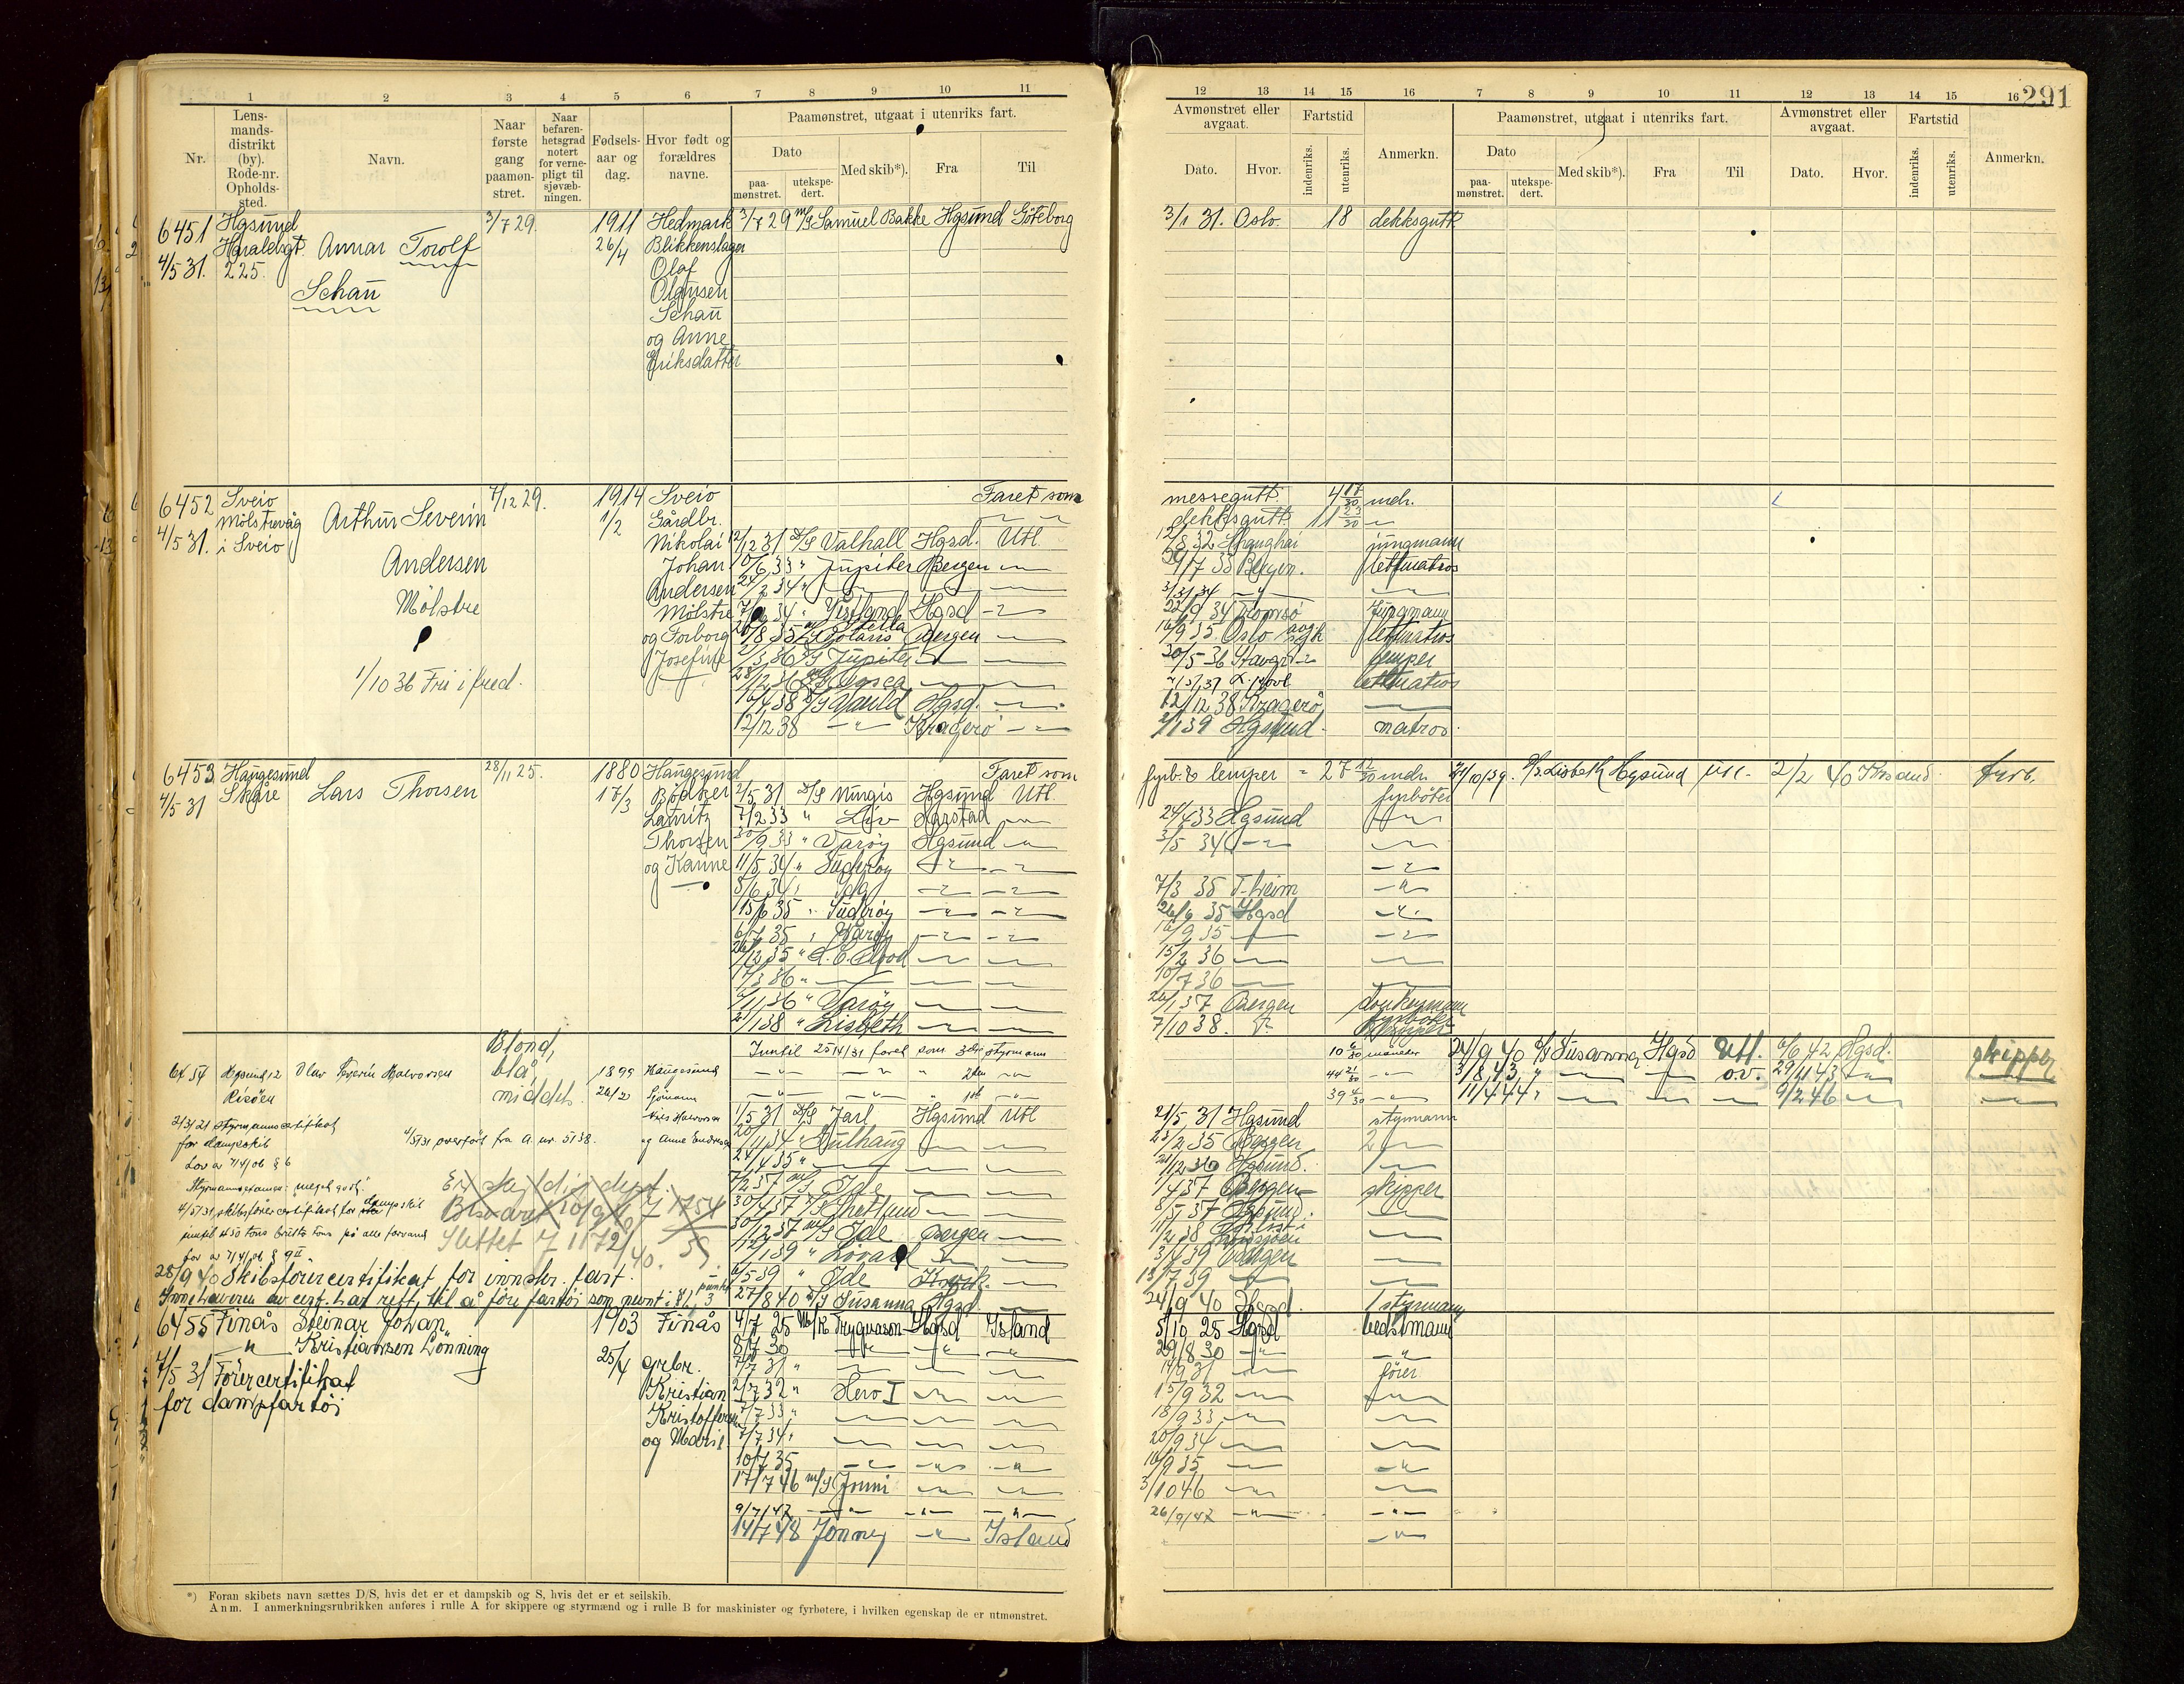 291
1 2 3 4 5 6 7 8 9 10 11
Nr.
Lens-
mands-
distrikt
(by).
Rode-nr.
Opholds-
sted.
Navn.
Naar
første
gang
paamøn-
stret.
Naar
befaren-
hetsgrad
notert
for verne-
pligt til
sjøvæb-
ningen.
Fødsels-
aar og
dag.
Hvor født og
forældres
navne.
Paamønstret, utgaat i utenriks fart.
Dato
paa-
mønstret.
utekspe-
dert.
Med skib*).
Fra
Til
12 13 14 15 16 7 8 9 10 11 12 13 14 15 16
Avmønstret eller
avgaat.
Dato.
Hvor.
Fartstid
indenriks.
utenriks.
Anmerkn.
Paamønstret, utgaat i utenriks fart.
Dato
paa-
mønstret.
utekspe-
dert.
Med skib*).
Fra
Til
Avmønstret eller
avgaat.
Dato.
Hvor.
Fartstid
indenriks.
utenriks.
Anmerkn.
6451 Hgsund 3/7 29. 1911 Hedmark 3/7 29 m/s Samuel Bakke Hgsund Göteborg 3/1 31. Oslo. 18 dekksgutt
Haraldsgt. Annar Torolf 26/4 Blikkenslager
4/5 31. 225. Olaf
Schau Olausen
Schau
og Anne
Eriksdatter
6452 Sveio 7/12 29. 1914 Sveio Faret som messegutt 4 17/30 mdr.
Mölstrevåg Arthur Severin 1/2 Gårdbr. dekksgutt 11 23/30
4/5 31. i Sveio Nikolai 12/12 31 D/S Valhall Hgsd. Utl. 12/8 32 Shanghai jungmann
Andersen Johan 10/6 33 " Jupiter Bergen 9/7 33 Bergen. lettmatros
Andersen
Mölstre Mölstre 34 " Vestland Hgsd 34 Tromsö Jungmann
og Torborg 8 35 Stella Polaris Bergen 16/9 35 Oslo lettmatros
Josefine 3 36 D/S Jupiter 30/5 36 Stavgr lemper
1/10 36 Fri i fred. lettmatros
38 D/S Gauld Hgsd. 12/12 38 Kragerö
12/12 38 Kragerö 2/1 39 Hgsund. matros.
6453 Haugesund 28/11 25. 1880 Haugesund Faret som fyrb. & lemper = 27 mdr. 24/10 39. D/S Lisbeth Hgsund utl. 2/2 40 Krsand. fyrb.
4/5 31 Skåre Lars Thorsen 17/3 Bödker 2/5 31 D/S Mungis Hgsund Utl. fyrböter
Lauritz 7/2 33 " Liv Harstad 24/4 33 Hgsund
Thorsen 30/9 33 " Varöy Hgsund 3/5 34
og Kanne 11/5 34 " Suderöy
8/6 34 " 7/3 35 T.heim
15/6 35 " Suderöy 26/6 35 Hgsd
6/7 35 " Varöy 16/9 35
12 35 " 15/2 36
17/3 36 " 10/7 36
11 36 " Varöy 26/1 37 Bergen donkeymann
2/1 38 " Lisbeth 7/10 38.
Blond, Inntil 25/4/31 faret som 3die styrmann 10 6/30 måneder 24/9 40 D/S Susanna Hgsd Utl. 6/6 42 Hgsd. skipper
6454 Hgsund 12 Olav Severin Halvorsen blå 1899 Haugesund 2den 44 21/30 3/8 43 " o.v. 29/11 43
Risöen middels. 26/2 Sjömann 1st 39 4/30 11/4 44 " 9/2 46
Nils Halvorsen 1/5 31 D/S Jarl Hgsund Utl 21/5 31 Hgsund styrmann
21/3 21 styrmannscertifikat
for dampskib 4/5 31 overfört fra A. nr. 5138. og Anne 11 34 " 23/2 35 Bergen 2
Lov av 7/4/06 § 6 24/4 35 " 12 36 Hgsund. 1
Styrmannseksamen: meget godt. 7/2 37 m/s Ide 1/4 37 Bergen skipper
4/5/31 skibsförercertifikat for dampskib 30/4 37 D/S Shetland 8/5 37 Hgsund.
inntil 450 tons brutto tons på alle farvand 30/12 37 m/s Ide Bergen 1/2 38
lov av 7/4/06 § 9 II. Slettet J 1172/40. 1 39 " 3/4 39 Bergen
28/9 40 Skibsförercertifikat for innskr. fart. 5 39 " Ide 13/7 39
Innehaveren av cert. har rett til å före fartöi som nevnt i § 1, punkt 3 27/8 40 D/S Susanna Hgsd. 24/9 40 Hgsd. 1 styrmann
6455 Finås Steinar Johan 1903 Finås 4/7 25 M/K Trygvason Hgsd Island 5/10 25 Hgsd bestmann
" Kristiansen Lönning 8/7 30 " " " 29/8 30 " "
4/5 31 Förercertifikat 25/4 grbr. 7/7 31 " 14/9 31 förer
for dampfartöi Kristian 2/7 32 " Hero I 15/9 32
Kristoffersen 7/7 33 " 18/9 33
og Marie. 7/7 34 " 20/9 34
10/7 35 16/9 35
17/7 46 m/s Jonni 3/10 46
9/7/47 " " " 26/9/47 " "
14/7 48 Jonny " Island "
*) Foran skibets navn sættes D/S, hvis det er et dampskib og S, hvis det er et seilskib.
Anm. I anmerkningsrubrikken anføres i rulle A for skippere og styrmænd og i rulle B for maskinister og fyrbøtere, i hvilken egenskap de er utmønstret.